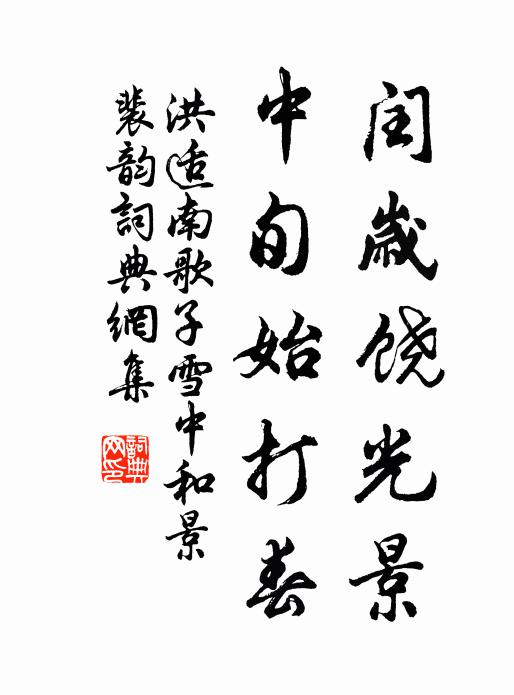 闰歲饶光景
中旬始打春
洪适南歌子雪中和景
裴韵詞典網集
詞典网印